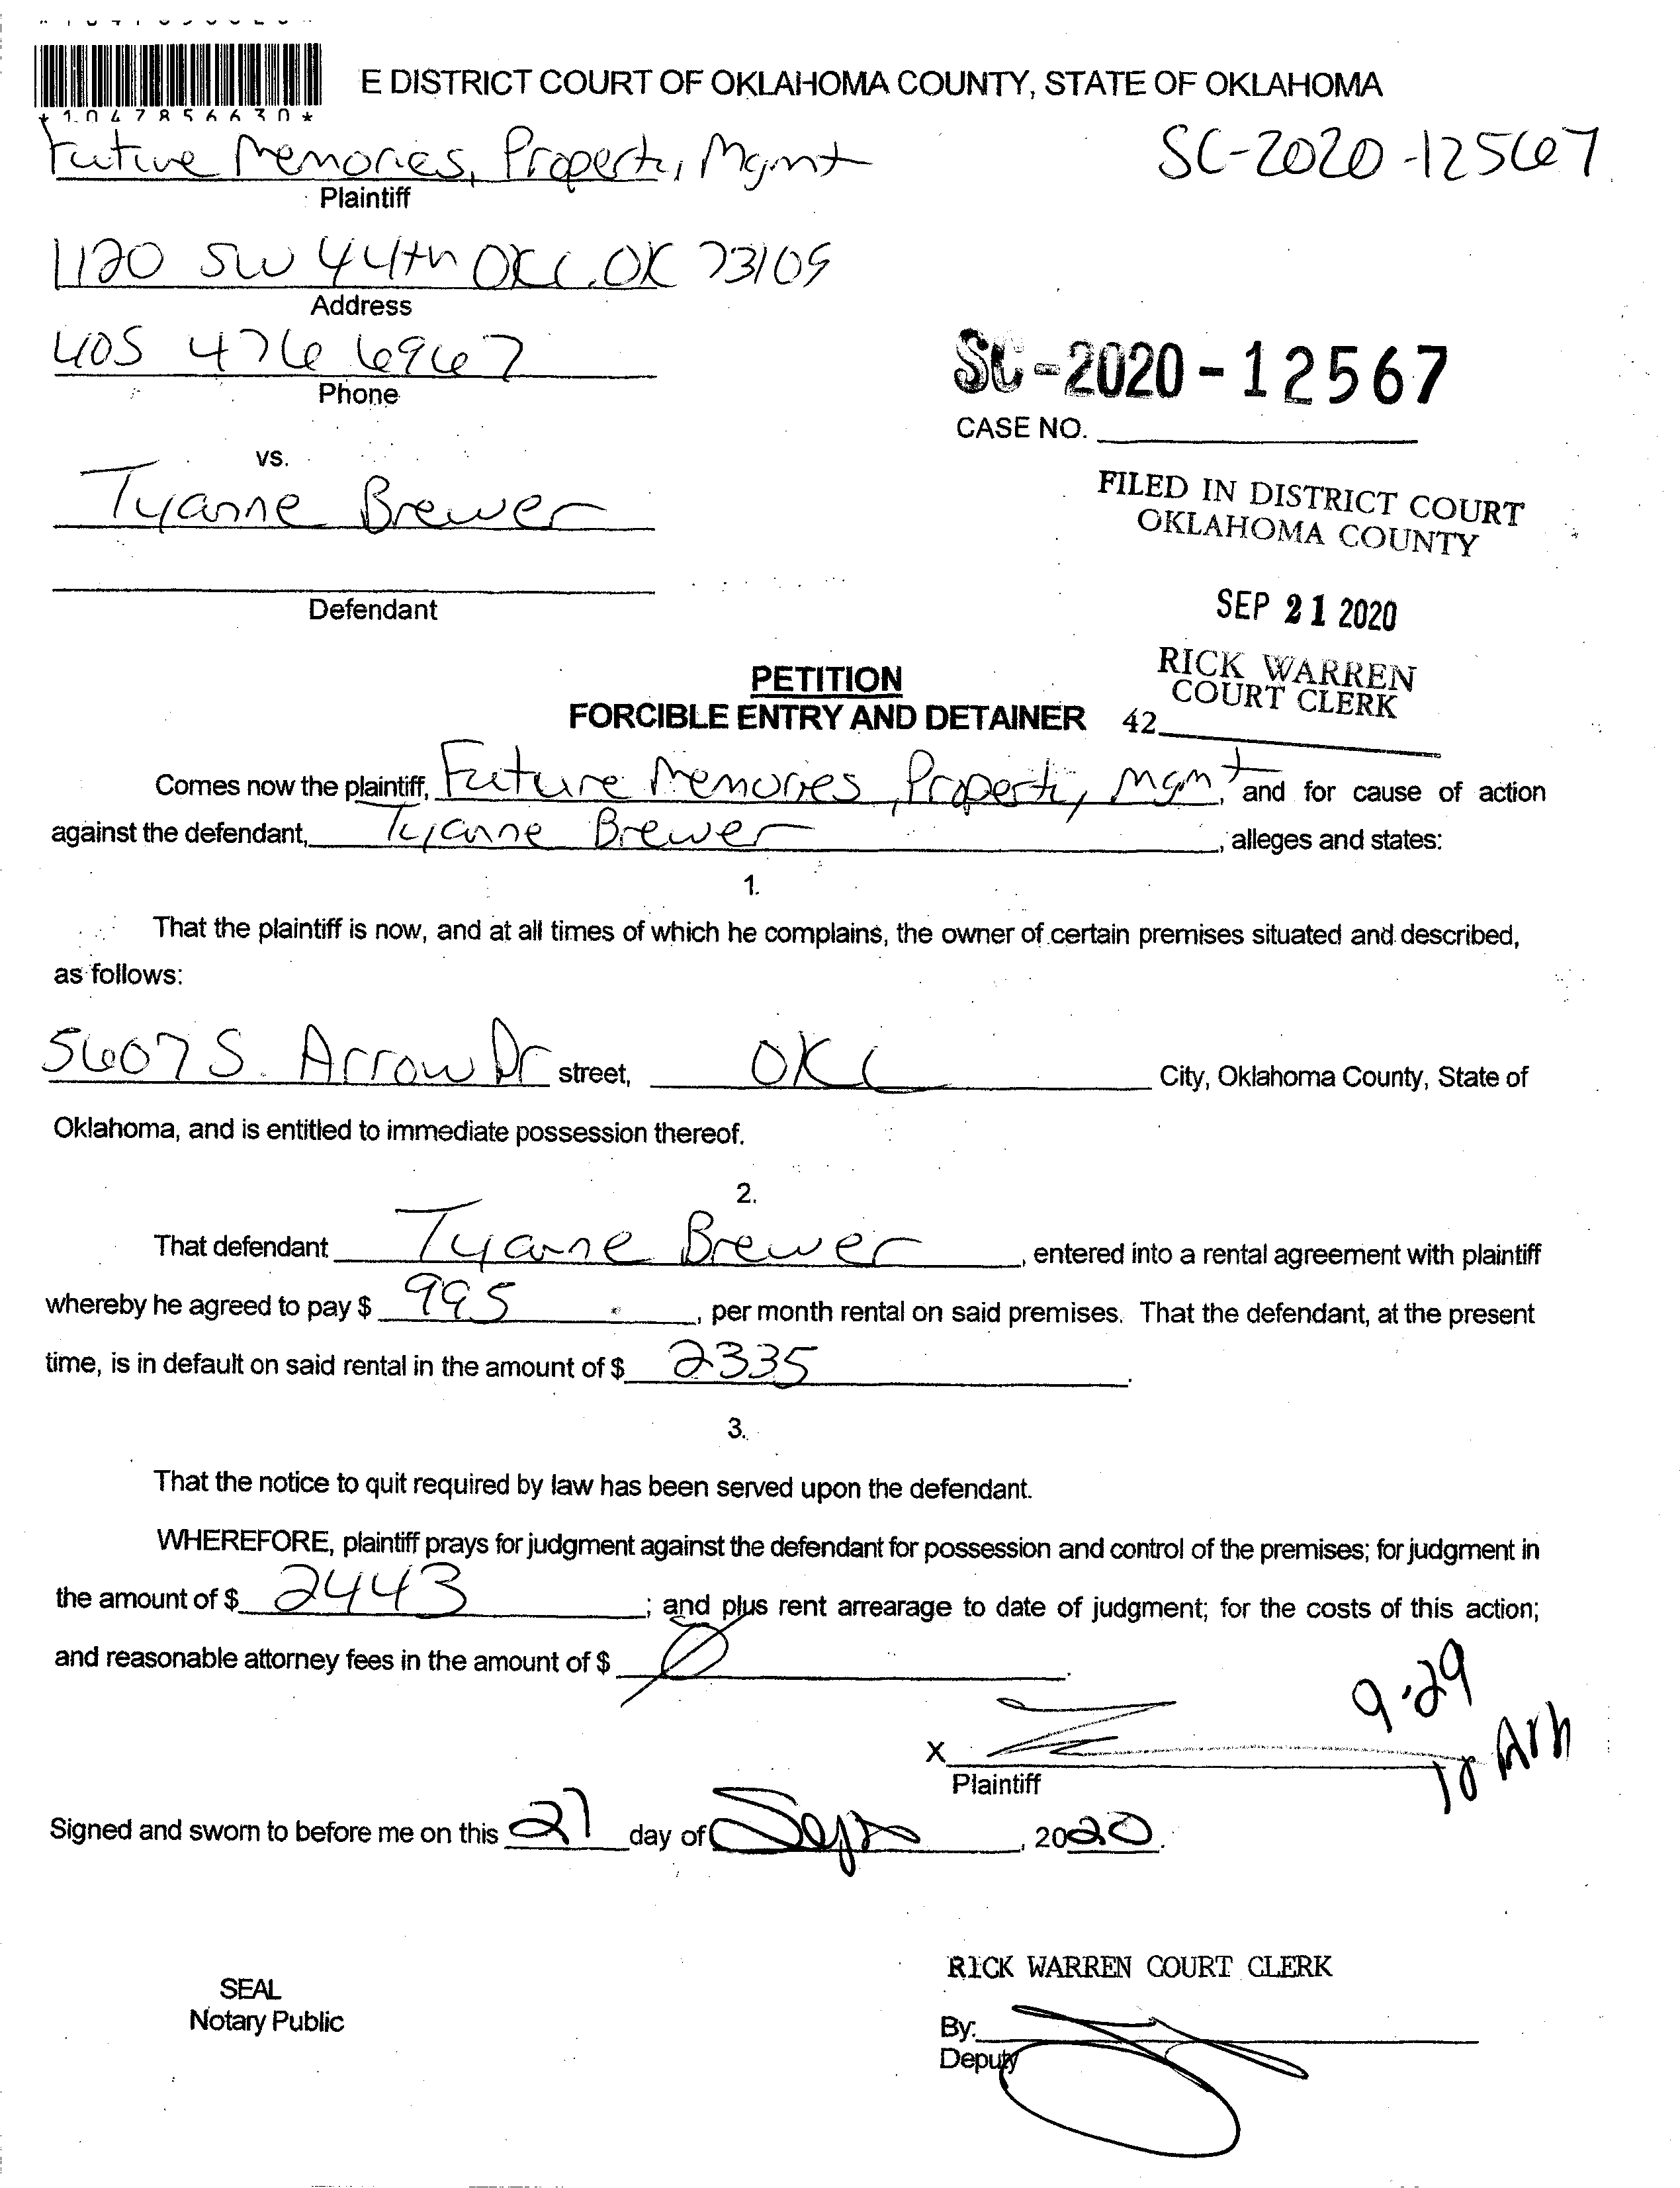 E DISTRICT COURT OF OKLAHOMA COUNTY, STATE OF OKLAHOMA
*1047856630*
Future Memories, Property Mgmt
SC-2020-12567
Plaintiff
1120 SW 44th OKC, OK 73109
Address
405 476 6967
Phone
SC-2020-12567
CASE NO.
vs.
Tyanne Brewer
FILED IN DISTRICT COURT
OKLAHOMA COUNTY
Defendant
SEP 21 2020
RICK WARREN
COURT CLERK
42
PETITION
FORCIBLE ENTRY AND DETAINER
Comes now the plaintiff, Future Memories, Property Mgmt, and for cause of action
against the defendant, Tyanne Brewer, alleges and states:
1.
That the plaintiff is now, and at all times of which he complains, the owner of certain premises situated and described,
as follows:
5607 S. Arrow Dr street, OKC City, Oklahoma County, State of
Oklahoma, and is entitled to immediate possession thereof.
2.
That defendant Tyanne Brewer, entered into a rental agreement with plaintiff
whereby he agreed to pay $ 995, per month rental on said premises. That the defendant, at the present
time, is in default on said rental in the amount of $ 2335.
3.
That the notice to quit required by law has been served upon the defendant.
WHEREFORE, plaintiff prays for judgment against the defendant for possession and control of the premises; for judgment in
the amount of $ 2443; and plus rent arrearage to date of judgment; for the costs of this action;
and reasonable attorney fees in the amount of $ 0.
9-29
X
Plaintiff
Signed and sworn to before me on this 21 day of Sept, 2020.
RICK WARREN COURT CLERK
SEAL
Notary Public
By:
Deputy